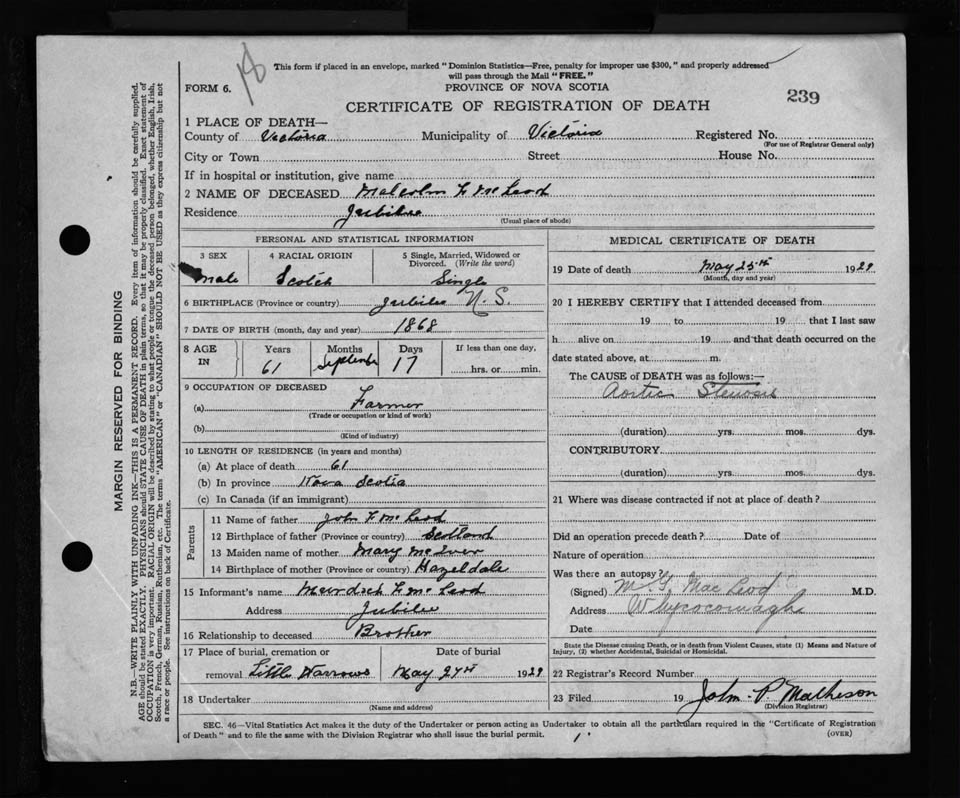 18
This form if placed in an envelope, marked "Dominion Statistics—Free, penalty for improper use $300," and properly addressed
will pass through the Mail "FREE."
FORM 6.
PROVINCE OF NOVA SCOTIA
CERTIFICATE OF REGISTRATION OF DEATH
239
1 PLACE OF DEATH—
County of Victoria Municipality of Victoria Registered No.
(For use of Registrar General only)
City or Town Street House No.
If in hospital or institution, give name
2 NAME OF DECEASED Malcolm F McLeod
Residence Jubilee
(Usual place of abode)
PERSONAL AND STATISTICAL INFORMATION
3 SEX 4 RACIAL ORIGIN 5 Single, Married, Widowed or Divorced. (Write the word)
Male Scotch Single
6 BIRTHPLACE (Province or country) Jubilee N. S.
7 DATE OF BIRTH (month, day and year) 1868
8 AGE IN Years Months Days If less than one day,
61 September 17 hrs. or min.
9 OCCUPATION OF DECEASED
(a) Farmer
(Trade or occupation or kind of work)
(b)
(Kind of industry)
10 LENGTH OF RESIDENCE (in years and months)
(a) At place of death 61
(b) In province Nova Scotia
(c) In Canada (if an immigrant)
Parents
11 Name of father John F McLeod
12 Birthplace of father (Province or country) Scotland
13 Maiden name of mother Mary McIver
14 Birthplace of mother (Province or country) Hazeldale
15 Informant's name Murdoch F McLeod
Address Jubilee
16 Relationship to deceased Brother
17 Place of burial, cremation or Date of burial
removal Little Narrows May 27th 1929
18 Undertaker
(Name and address)
MEDICAL CERTIFICATE OF DEATH
19 Date of death May 25th 1929
(Month, day and year)
20 I HEREBY CERTIFY that I attended deceased from
19 to 19 that I last saw
h alive on 19 and that death occurred on the
date stated above, at m.
The CAUSE of DEATH was as follows:—
Aortic Stenosis
(duration) yrs. mos. dys.
CONTRIBUTORY
(duration) yrs. mos. dys.
21 Where was disease contracted if not at place of death?
Did an operation precede death? Date of
Nature of operation
Was there an autopsy?
(Signed) MacLeod M.D.
Address Whycocomagh
Date
State the Disease causing Death, or in death from Violent Causes, state (1) Means and Nature of
Injury, (2) whether Accidental, Suicidal or Homicidal.
22 Registrar's Record Number
23 Filed 19 John P. Matheson
(Division Registrar)
SEC. 46—Vital Statistics Act makes it the duty of the Undertaker or person acting as Undertaker to obtain all the particulars required in the "Certificate of Registration
of Death" and to file the same with the Division Registrar who shall issue the burial permit.
(OVER)
MARGIN RESERVED FOR BINDING
N.B.—WRITE PLAINLY WITH UNFADING INK—THIS IS A PERMANENT RECORD. Every item of information should be carefully supplied.
AGE should be stated EXACTLY. PHYSICIANS should STATE CAUSE OF DEATH in plain terms, so that it may be properly classified. Exact statement of
OCCUPATION is very important. RACIAL ORIGIN will be described by stating to what people or tongue the deceased person belonged, whether English, Irish,
Scotch, French, German, Russian, Ruthenian, etc. The terms "AMERICAN" or "CANADIAN" SHOULD NOT BE USED as they express citizenship but not
a race or people. See instructions on back of Certificate.